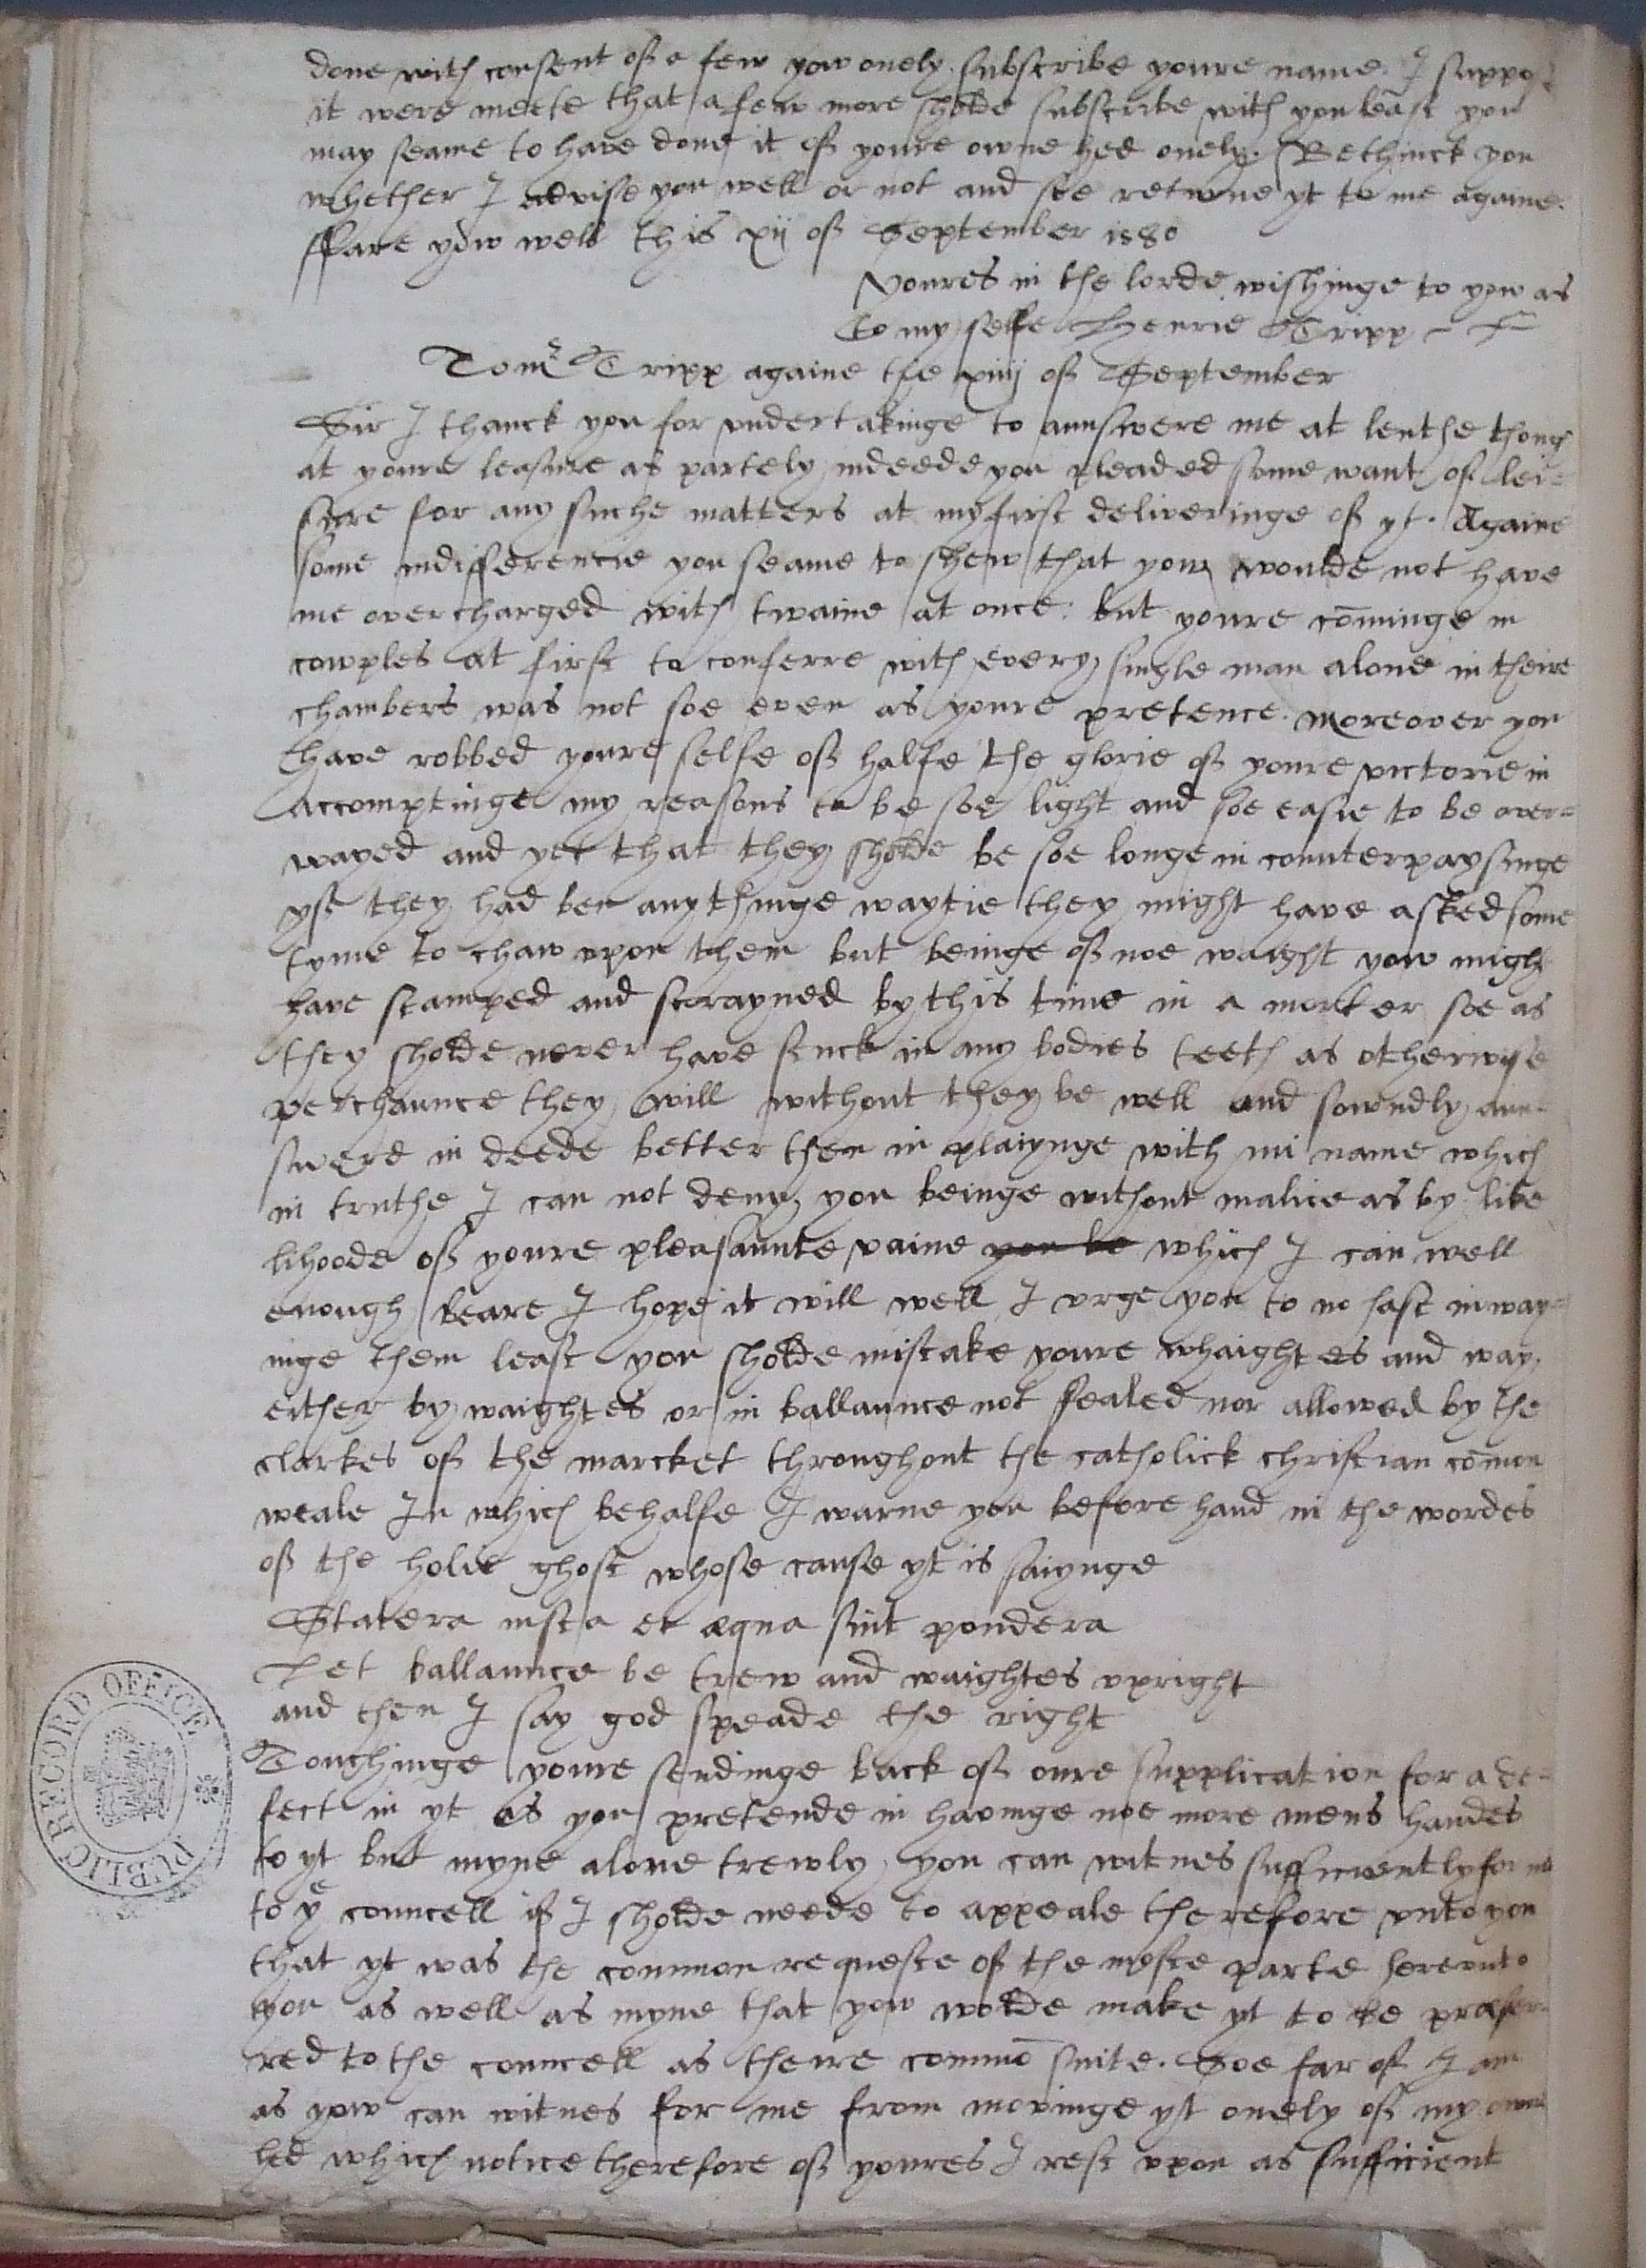 done with consent of a few yow onely subscribe youre name. I suppo
it were meete that a few more sholde subscribe with you least you
may seame to have done it of youre owne hed onely. Bethinck you
whether I advise you well or not and soe retorne yt to me againe.
ffare yow well this xij of September 1580
Youres in the lorde wishinge to yow as
to my selfe Henrie Tripp
To mr Tripp againe the xiiij of September
Sir I thanck you for undertakinge to aunswere me at lenthe though
at youre leasure as partely indeede you pleaded some want of lei=
sure for any suche matters at my first deliveringe of yt. Againe
some indifferencie you seame to shew that yow woulde not have
me overcharged with twaine at once: but youre cominge in
cowples at first to conferre with every single man alone in theire
chambers was not soe even as youre pretence. Moreover you
have robbed youre selfe of halfe the glorie of youre victorie in
accomptinge my reasons to be soe light and soe easie to be over=
wayed and yet that they sholde be soe longe in counterpaysinge
yf they had ben any thinge waytie they might have asked some
tyme to chaw upon them but beinge of noe waight yow migh
have stamped and strayned by this time in a morter soe as
they sholde never have stuck in any bodies teeth as otherwyse
perchaunce they will without they be well and sowndly aun=
swere in deede better then in plaiynge with mi name which
in truthe I can not deny you beinge without malice as by like
lihoode of youre pleasaunte vaine you be which I can well
enough beare I hope it will well I urge you to no hast in way=
inge them least you sholde mistake youre whaightes and way
either by waightes or in ballaunce not sealed nor allowed by the
clarkes of the marcket throughout the catholick christian comon
weale In which behalfe I warne you before hand in the wordes
of the holie ghost whose cause yt is saiynge
Statera iusta et æqua sint pondera
Let ballaunce be trew and waightes upright
and then I say god speade the right
Touchinge youre sendinge back of oure supplication for a de=
fect in yt as you pretende in havinge noe more mens handes
to yt but myne alone trewly you can witnes sufficiently for me
to ye councell if I sholde neede to appeale therefore unto you
that yt was the common requeste of the moste parte here unto
you as well as myne that yow wolde make yt to be prefer=
red to the councell as theire commo suite. Soe far of I am
as yow can witnes for me from movinge yt onely of my owne
hed which notice therefore of youres I rest upon as sufficient
PUBLIC RECORD OFFICE